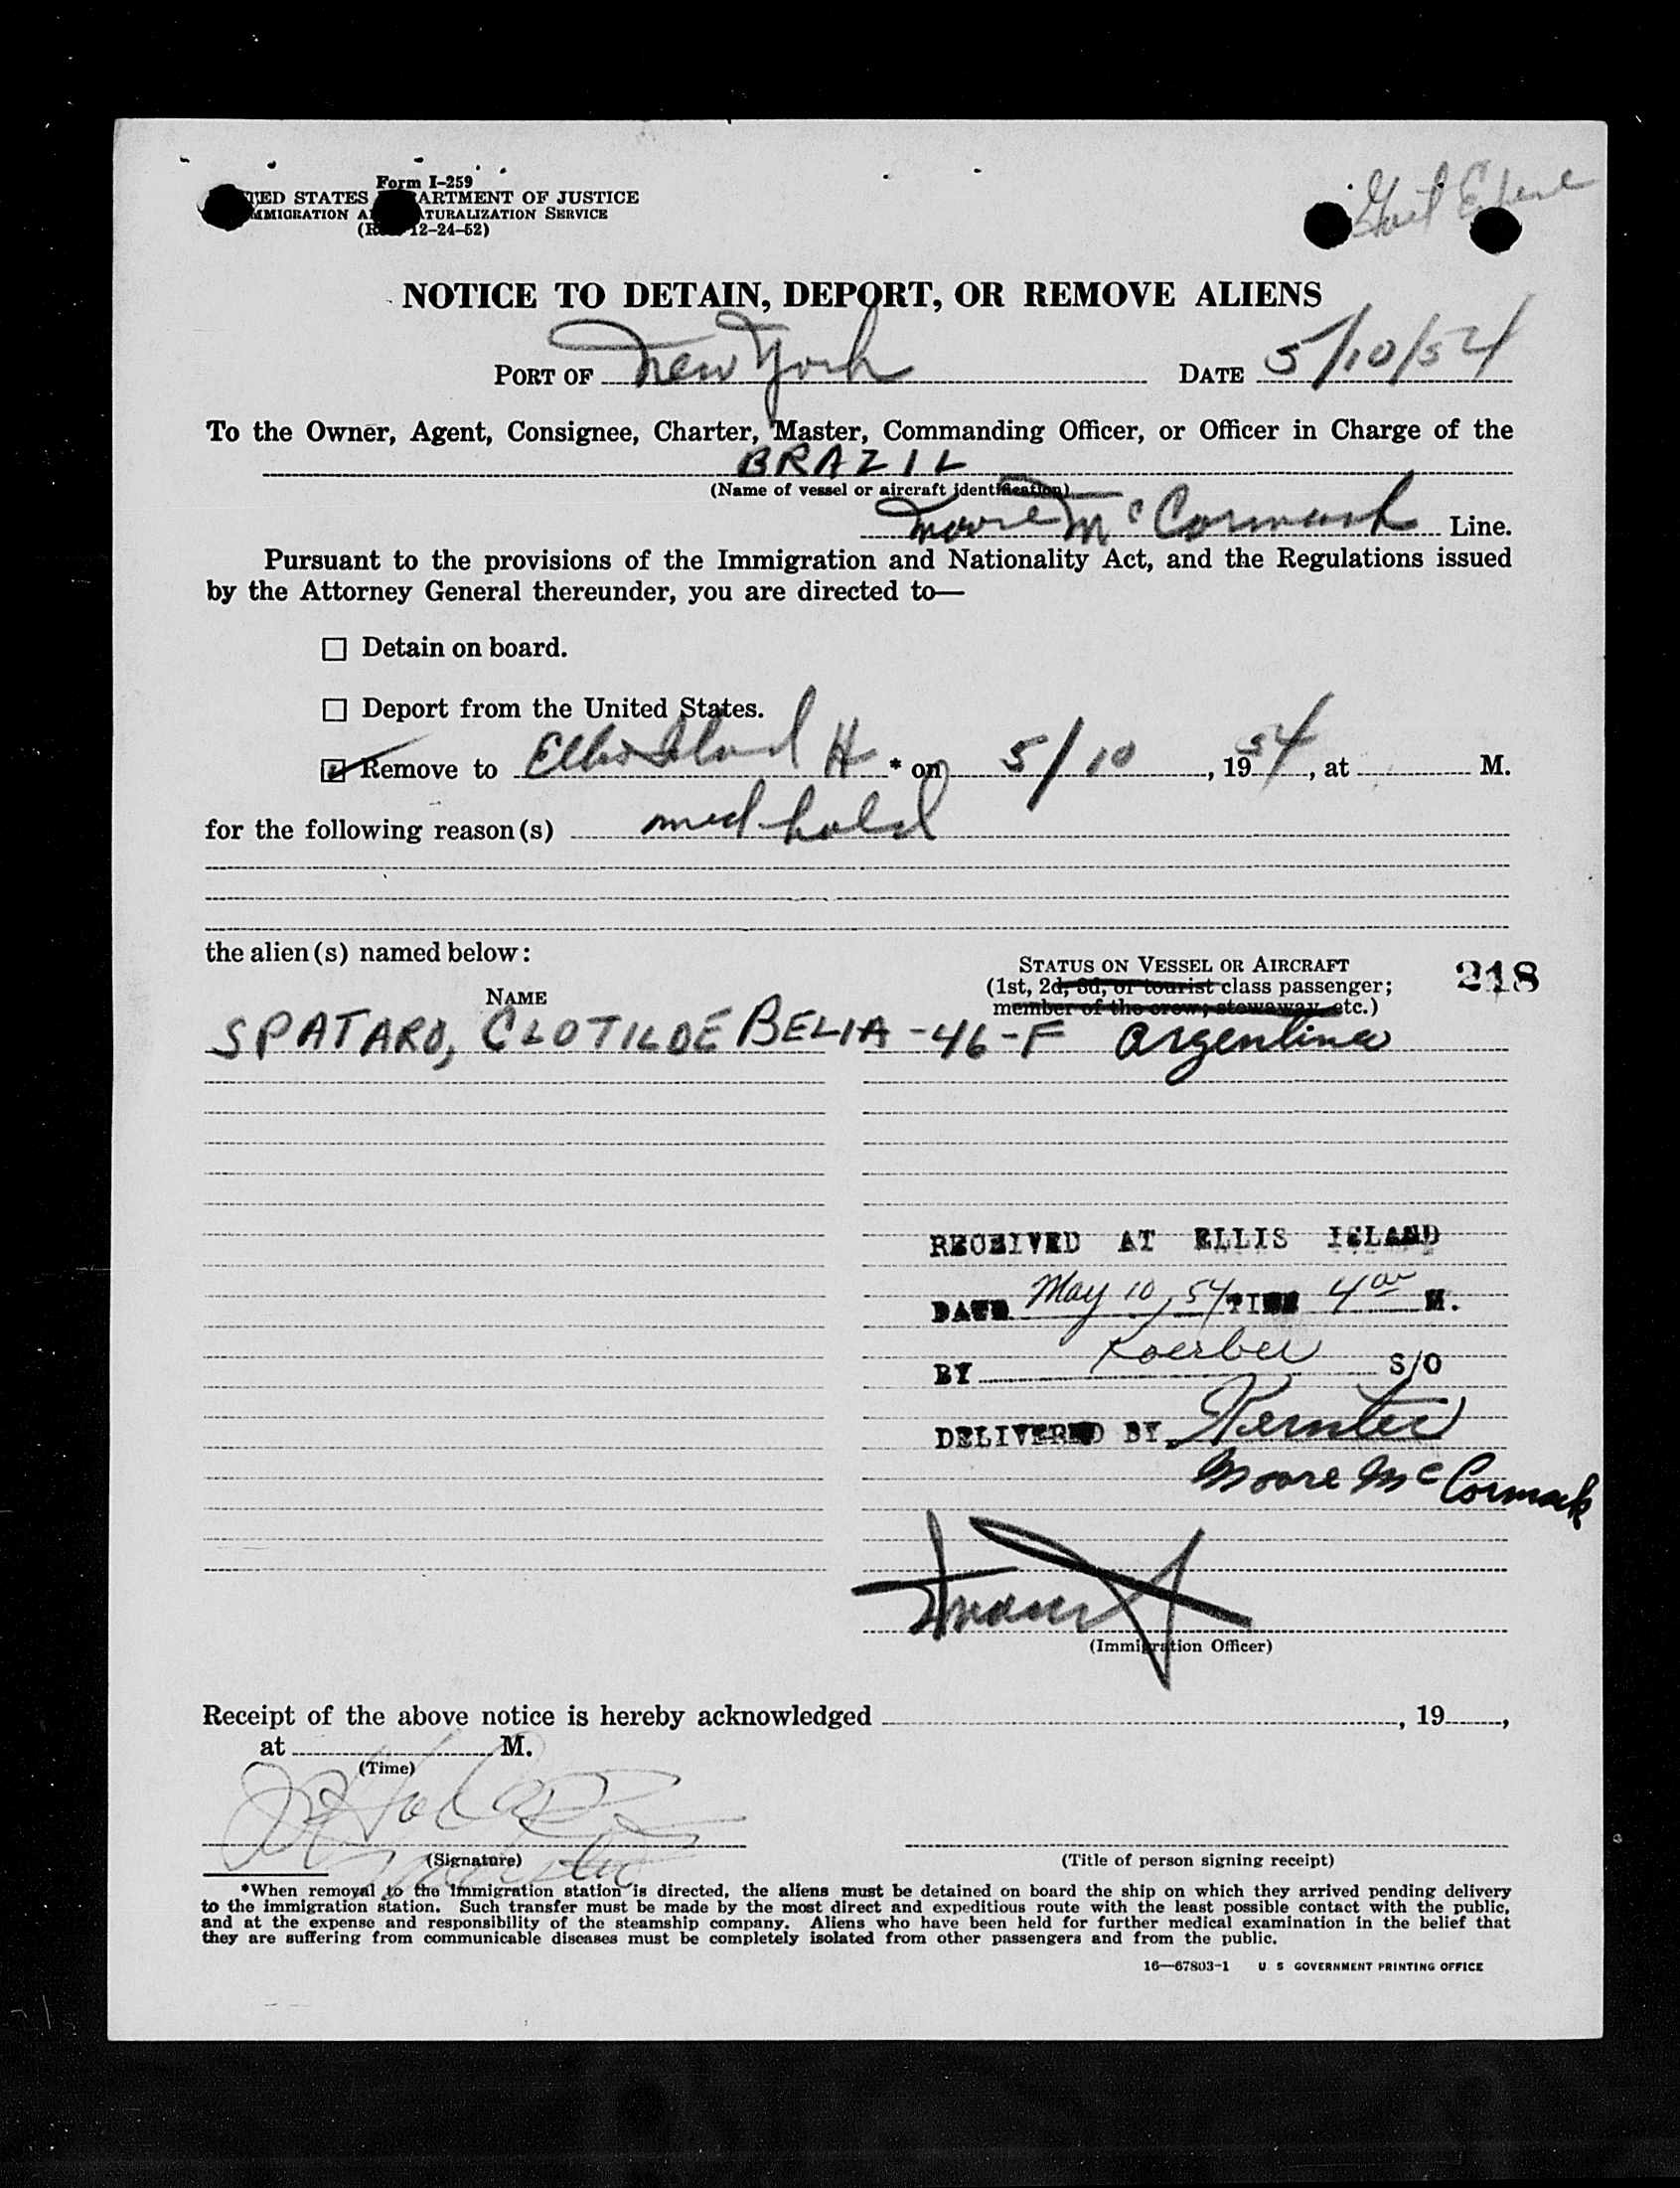 Form I-259
TED STATES ARTMENT OF JUSTICE
MMIGRATION A ATURALIZATION SERVICE
12-24-52)
NOTICE TO DETAIN, DEPORT, OR REMOVE ALIENS
PORT OF New York DATE 5/10/54
To the Owner, Agent, Consignee, Charter, Master, Commanding Officer, or Officer in Charge of the
BRAZIL
(Name of vessel or aircraft identification)
Moore McCormack Line.
Pursuant to the provisions of the Immigration and Nationality Act, and the Regulations issued
by the Attorney General thereunder, you are directed to—
Detain on board.
Deport from the United States.
Remove to Ellis Island H * on 5/10, 1954, at M.
for the following reason(s) med hold
the alien(s) named below:
STATUS ON VESSEL OR AIRCRAFT
(1st, 2d, 3d, or tourist class passenger;
member of the crew; stowaway, etc.)
218
NAME
SPATARO, CLOTILDE BELIA -46-F Argentina
RECEIVED AT ELLIS ISLAND
DATE May 10, 54 TIME 4 M.
BY Koerber S/O
DELIVERED BY
Moore McCormack
(Immigration Officer)
Receipt of the above notice is hereby acknowledged , 19 ,
at M.
(Time)
(Signature) (Title of person signing receipt)
*When removal to the immigration station is directed, the aliens must be detained on board the ship on which they arrived pending delivery
to the immigration station. Such transfer must be made by the most direct and expeditious route with the least possible contact with the public,
and at the expense and responsibility of the steamship company. Aliens who have been held for further medical examination in the belief that
they are suffering from communicable diseases must be completely isolated from other passengers and from the public.
16—67803-1 U S GOVERNMENT PRINTING OFFICE